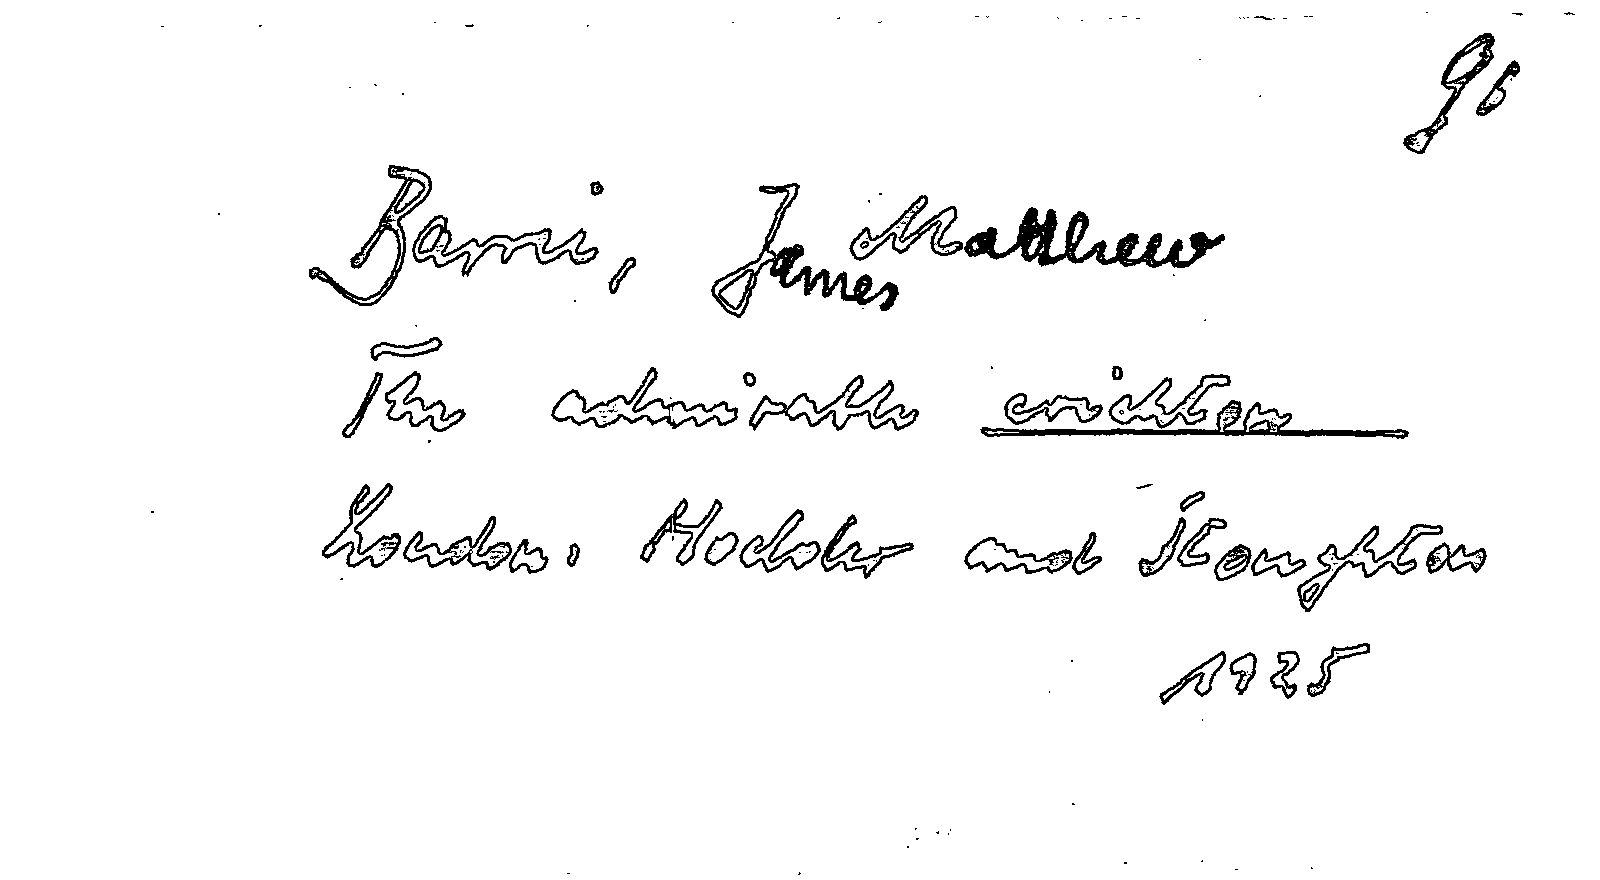 96
Barrie, James Matthew
The admirable crichton
London: Hodder and Stoughton
1925